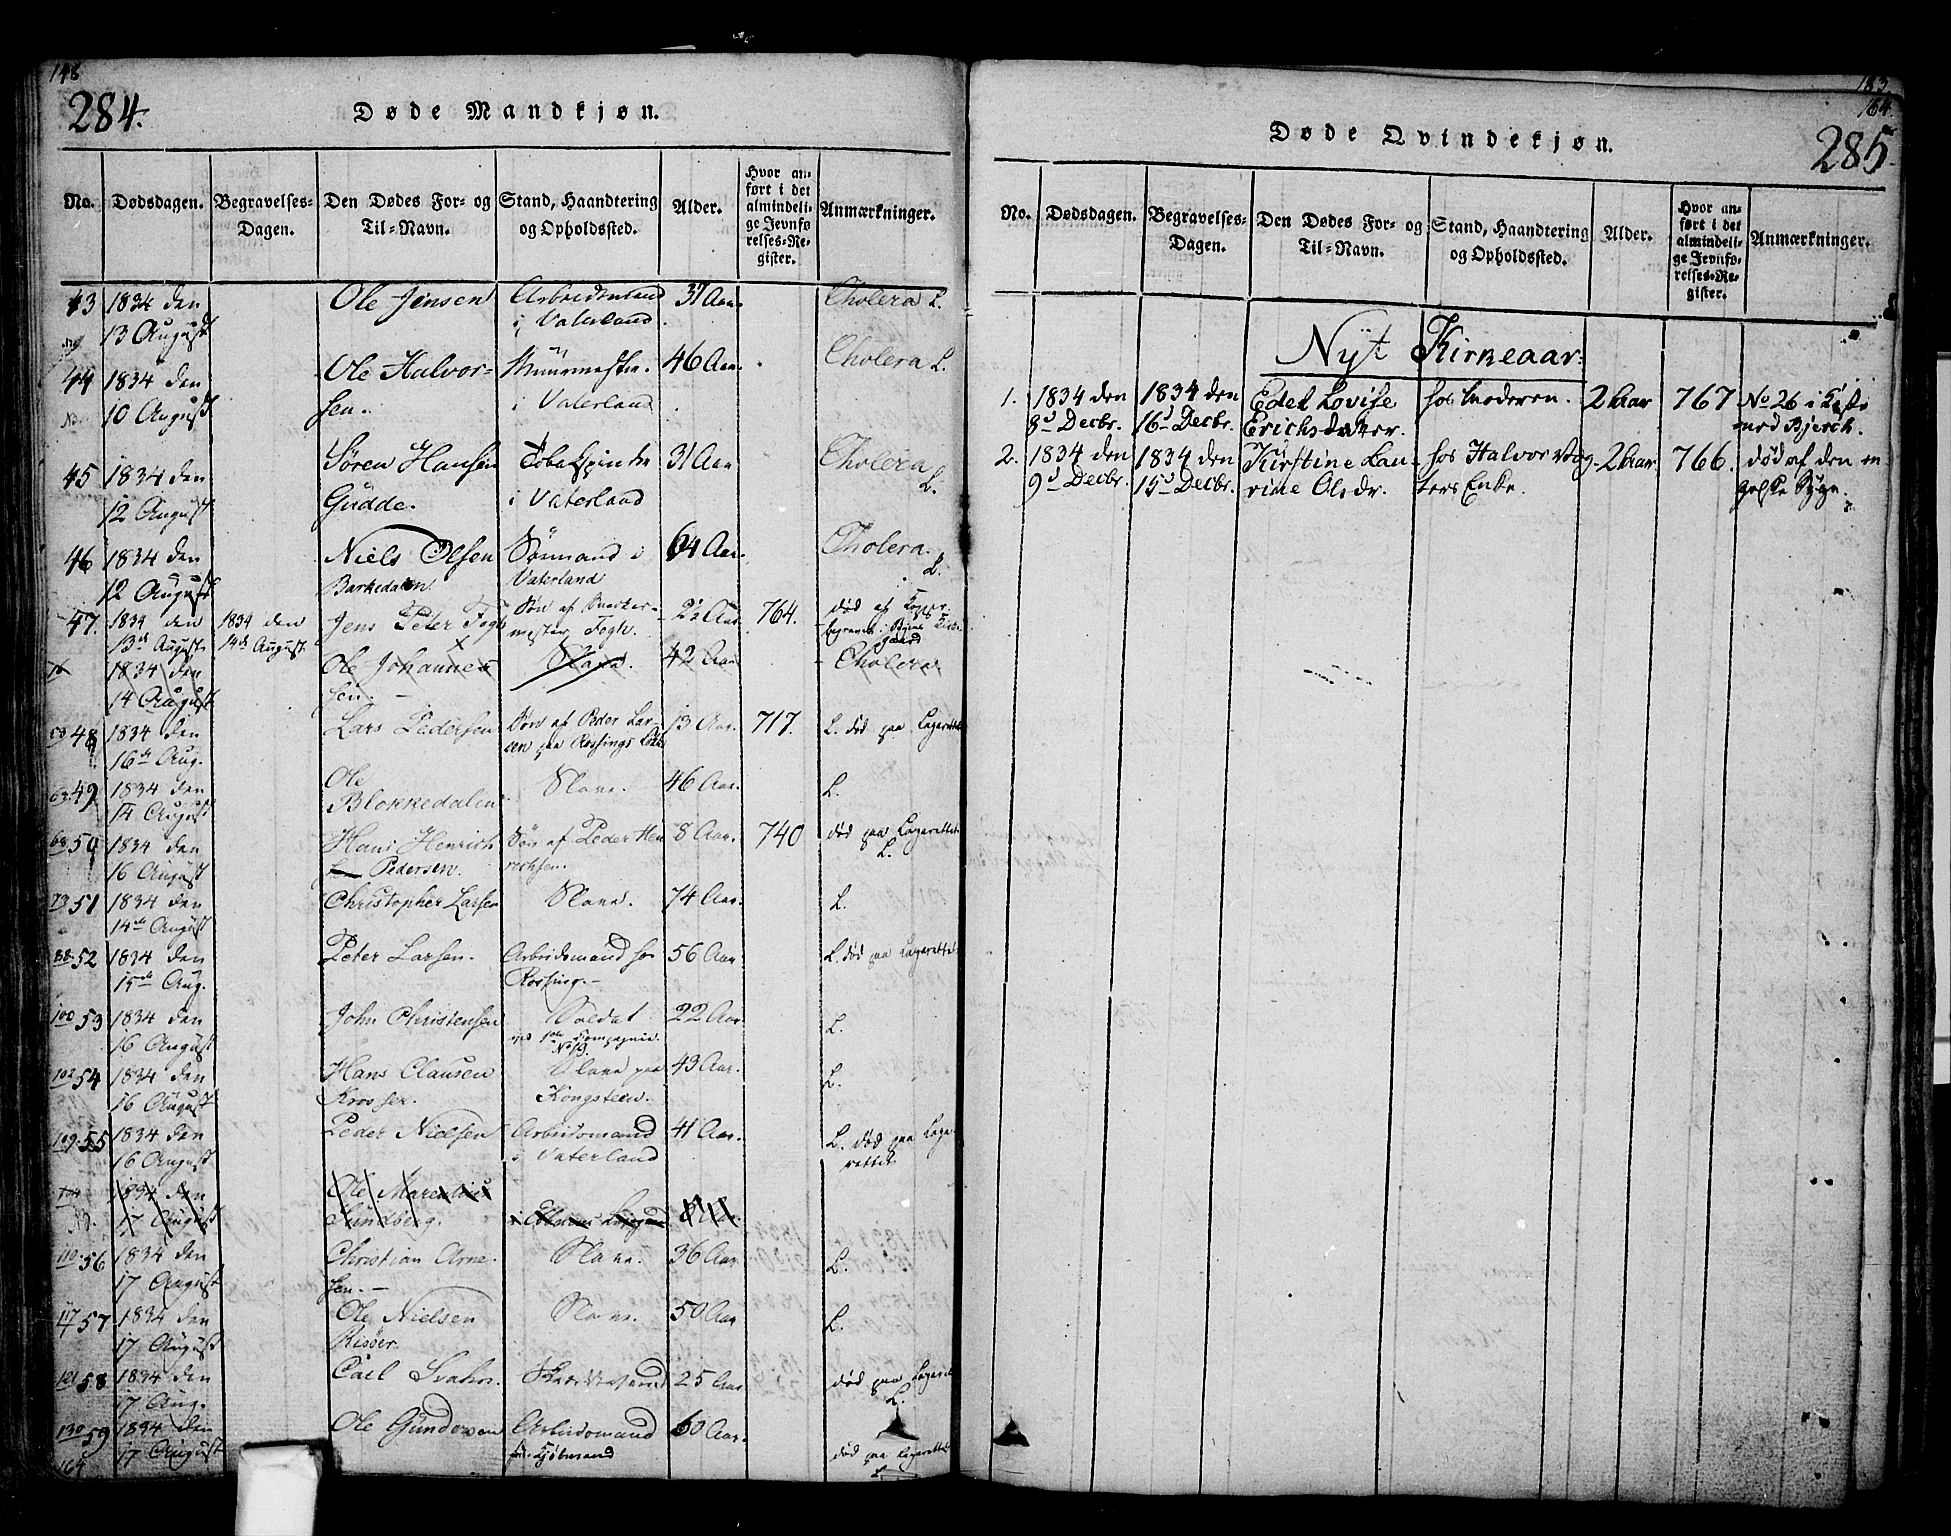 148
284.
Døde Mandkjøn.
No. Dødsdagen. Begravelses-Dagen. Den Dødes For- og Til-Navn. Stand, Haandtering og Opholdssted. Alder. Hvor anført i det almindelige Jevnførelses-Register. Anmærkninger.
43 1834 den Ole Jensen Arbeidsmand 31 Aar. Cholera L.
13 August i Vaterland
44 1834 den Ole Halvor- Muurmester. 46 Aar. Cholera L.
10 August sen. i Vaterland
45 1834 den Søren Hansen Tobakspinder 31 Aar Cholera
12 August Gudde. i Vaterland L.
46 1834 den Niels Olsen Sømand i 64 Aar. Cholera.
12 August Barkedalen Vaterland L.
47. 1834 den 1834 den Jens Peter Fogh Søn af 2½ Aar 764. død af
13de August. 14de August. mester Fogh.
1834 den Ole Johanne- Slave. 42 Aar Cholera
14 August sen.
59 48 1834 den Lars Pedersen Søn af Peder Lar- 13 Aar. 717. L. død paa Lazarettet
16de Aug. sen paa Rossings
63 49 1834 den Ole Slave. 46 Aar. L.
14 August Blokkedalen
68 50 1834 den Hans Henrich Søn af Peder Hen 8 Aar. 740 død paa Lazarettet
16 August Pedersen. richsen. L.
73 51 1834 den Christopher Larsen Slave. 74 Aar. L.
14de August
88 52 1834 den Peter Larsen. Arbeidsmand hos 56 Aar L. død paa Lazarettet
15de Aug. Rossing.
100 53 1834 den John Christensen Soldat 22 Aar L.
16 August Compagnie No 19.
102 54 1834 den Hans Clausen Slave paa 43 Aar. L.
16 August Krosser. Kongsteen.
109 55 1834 den Peder Nielsen Arbeidsmand 41 Aar. L. død paa Laza-
16 August i Vaterland rettet
104 1834 den Ole Marentius
17 August Sundberg.
110 56 1834 den Christian Arne- Slave. 36 Aar L.
17 August sen.
117 57 1834 den Ole Nielsen Slave. 50 Aar L.
17 August Risöer.
121 58 1834 den Carl Svahn. 25 Aar død paa Lazaret
17 Aug. L.
130 59 1834 den Ole Gundersen Arbeidsmand 60 Aar.
17 August død paa Lazarettet
164 L.
183.
164.
285
Døde Qvindekjøn.
No. Dødsdagen. Begravelses-Dagen. Den Dødes For- og Til-Navn. Stand, Haandtering og Opholdssted. Alder. Hvor anført i det almindelige Jevnførelses-Register. Anmærkninger.
Nyt Kirkeaar.
1. 1834 den 1834 den Edel Lovise hos Moderen. 2 Aar 767 No 26 i Kiste
8d Decbr. 16d Decbr. Erichsdatter. med Bjerck.
2. 1834 den 1834 den Kirstine Lau- hos Halvor Vog- 2 Aar 766. død af den en-
9d Decbr. 15d Decbr. rine Olsdr. ters Enke. gelske Syge.